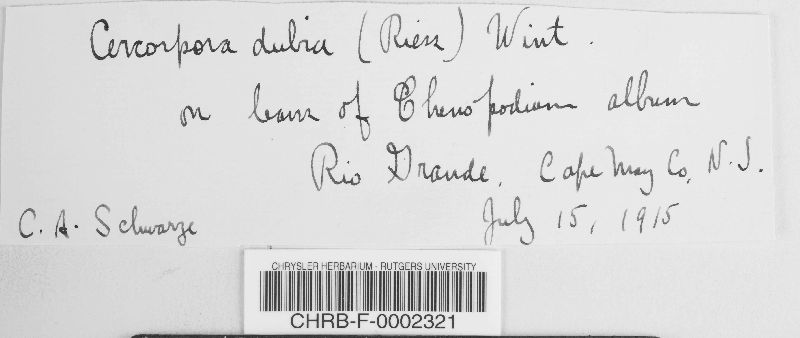 Cercorpora dubia (Riess) Wint.
on leaves of Chenopodium album
Rio Grande, Cape May Co, N.J.
C. A. Schwarze
July 15, 1915
CHRYSLER HERBARIUM - RUTGERS UNIVERSITY
CHRB-F-0002321